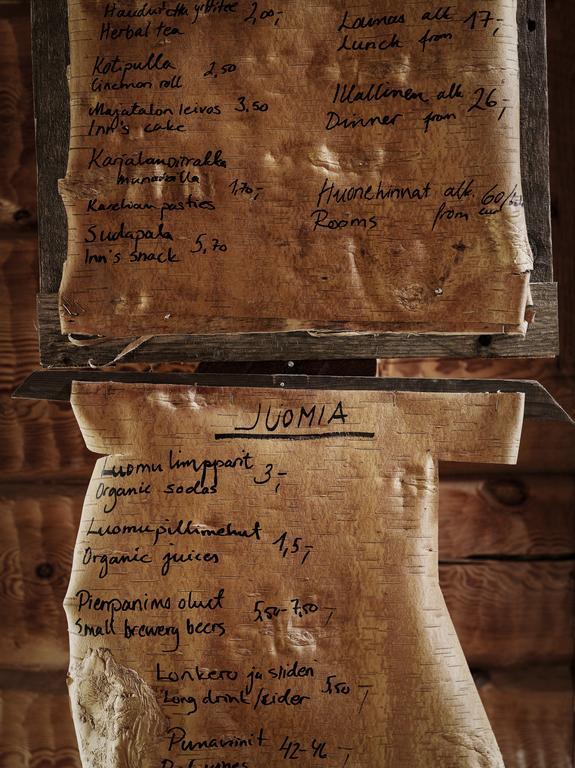 2,00,-
Herbal tea
Korvapulla 2,50
Cinemon roll
Majatalon leivos 3,50
Inn's cake
Karjalanpiirakka
munavoilla 1,70,-
Karelian pasties
Sudapala 5,70
Inn's snack
Lounas alk. 17,-
Lunch from
Illallinen alk. 26,-
Dinner from
Huonehinnat alk. 60/
Rooms from eur
JUOMIA
Luomu limpparit 3,-
Organic sodas
Luomupillimehut 1,5,-
Organic juices
Pienpanimo oluet 5,50-7,50,-
Small brewery beers
Lonkero ja siideri 5,50,-
Long drink/cider
Punaviinit 42-46,-